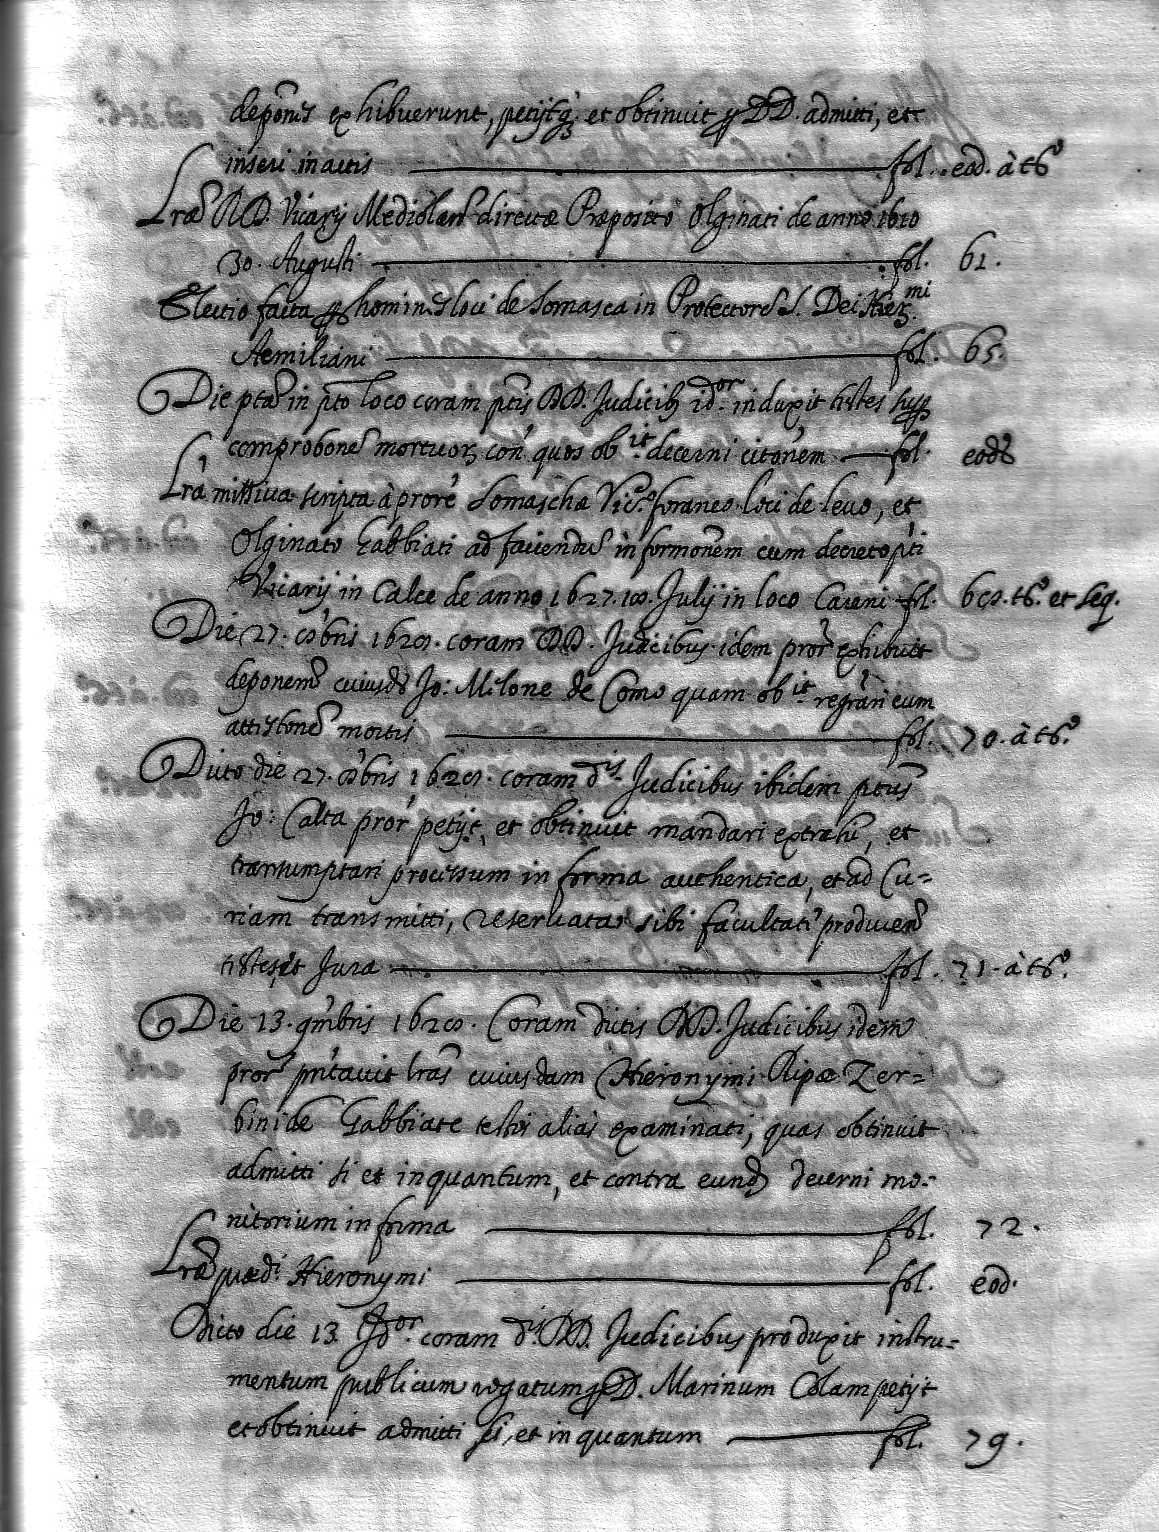 deponẽs exhibuerunt, petijtq; et obtinuit ꝑ DD. admitti, et
inseri in actis fol. eod. à tg.º
Lrae RD. Vicarij Mediolan. directae Praeposito Olginati de anno 1610
30. Augusti fol. 61.
Electio facta ꝑ homines loci de Somasca in Protectorẽ S. Dei Hier.mi
Aemiliani fol. 65.
Die ptã in pto loco coram ptis DD. Judicib; id.or induxit testes suꝑ
comprobonẽ mortuor; con' quos ob.it decerni citonem fol. eodẽ
Lra missiva scripta à prore Somaschae Vic.º foraneo loci de leuo, et
Olginato Gabbiati ad faciendũ informonem cum decreto pti
Vicarij in Calce de anno 1627. Julij in loco Careni fol. 69. tg.º et seq.
Die 27. 8bris 1629. coram DD. Judicibus idem pror exhibuit
deponemẽ cuiusdẽ Jo: Milone de Como quam ob.it regrari cum
attestonẽ mortis fol. 70. à tg.º
Dicto die 27. 8bris 1629. coram d.is Judicibus ibidem ptus
Jo: Calta pror petijt, et obtinuit mandari extrahi, et
transumptari processum in forma authentica, et ad Cu=
riam transmitti, reseruata sibi facultati producen
testes, et Jura fol. 71. à tg.º
Die 13. 9mbris 1629. Coram dictis DD. Judicibus idem
pror pntauit lras cuiusdam Hieronymi Ripae Zer=
bini de Gabbiate testis alias examinati, quas obtinuit
admitti si et inquantum, et contra eundẽ decerni mo=
nitorium in forma fol. 72.
Lrae praedi Hieronymi fol. eod.
Dicto die 13 Id.or coram d.is DD. Judicibus produxit instru=
mentum publicum rogatum ꝑ D. Marinum Colam petijt
et obtinuit admitti si, et in quantum fol. 79.